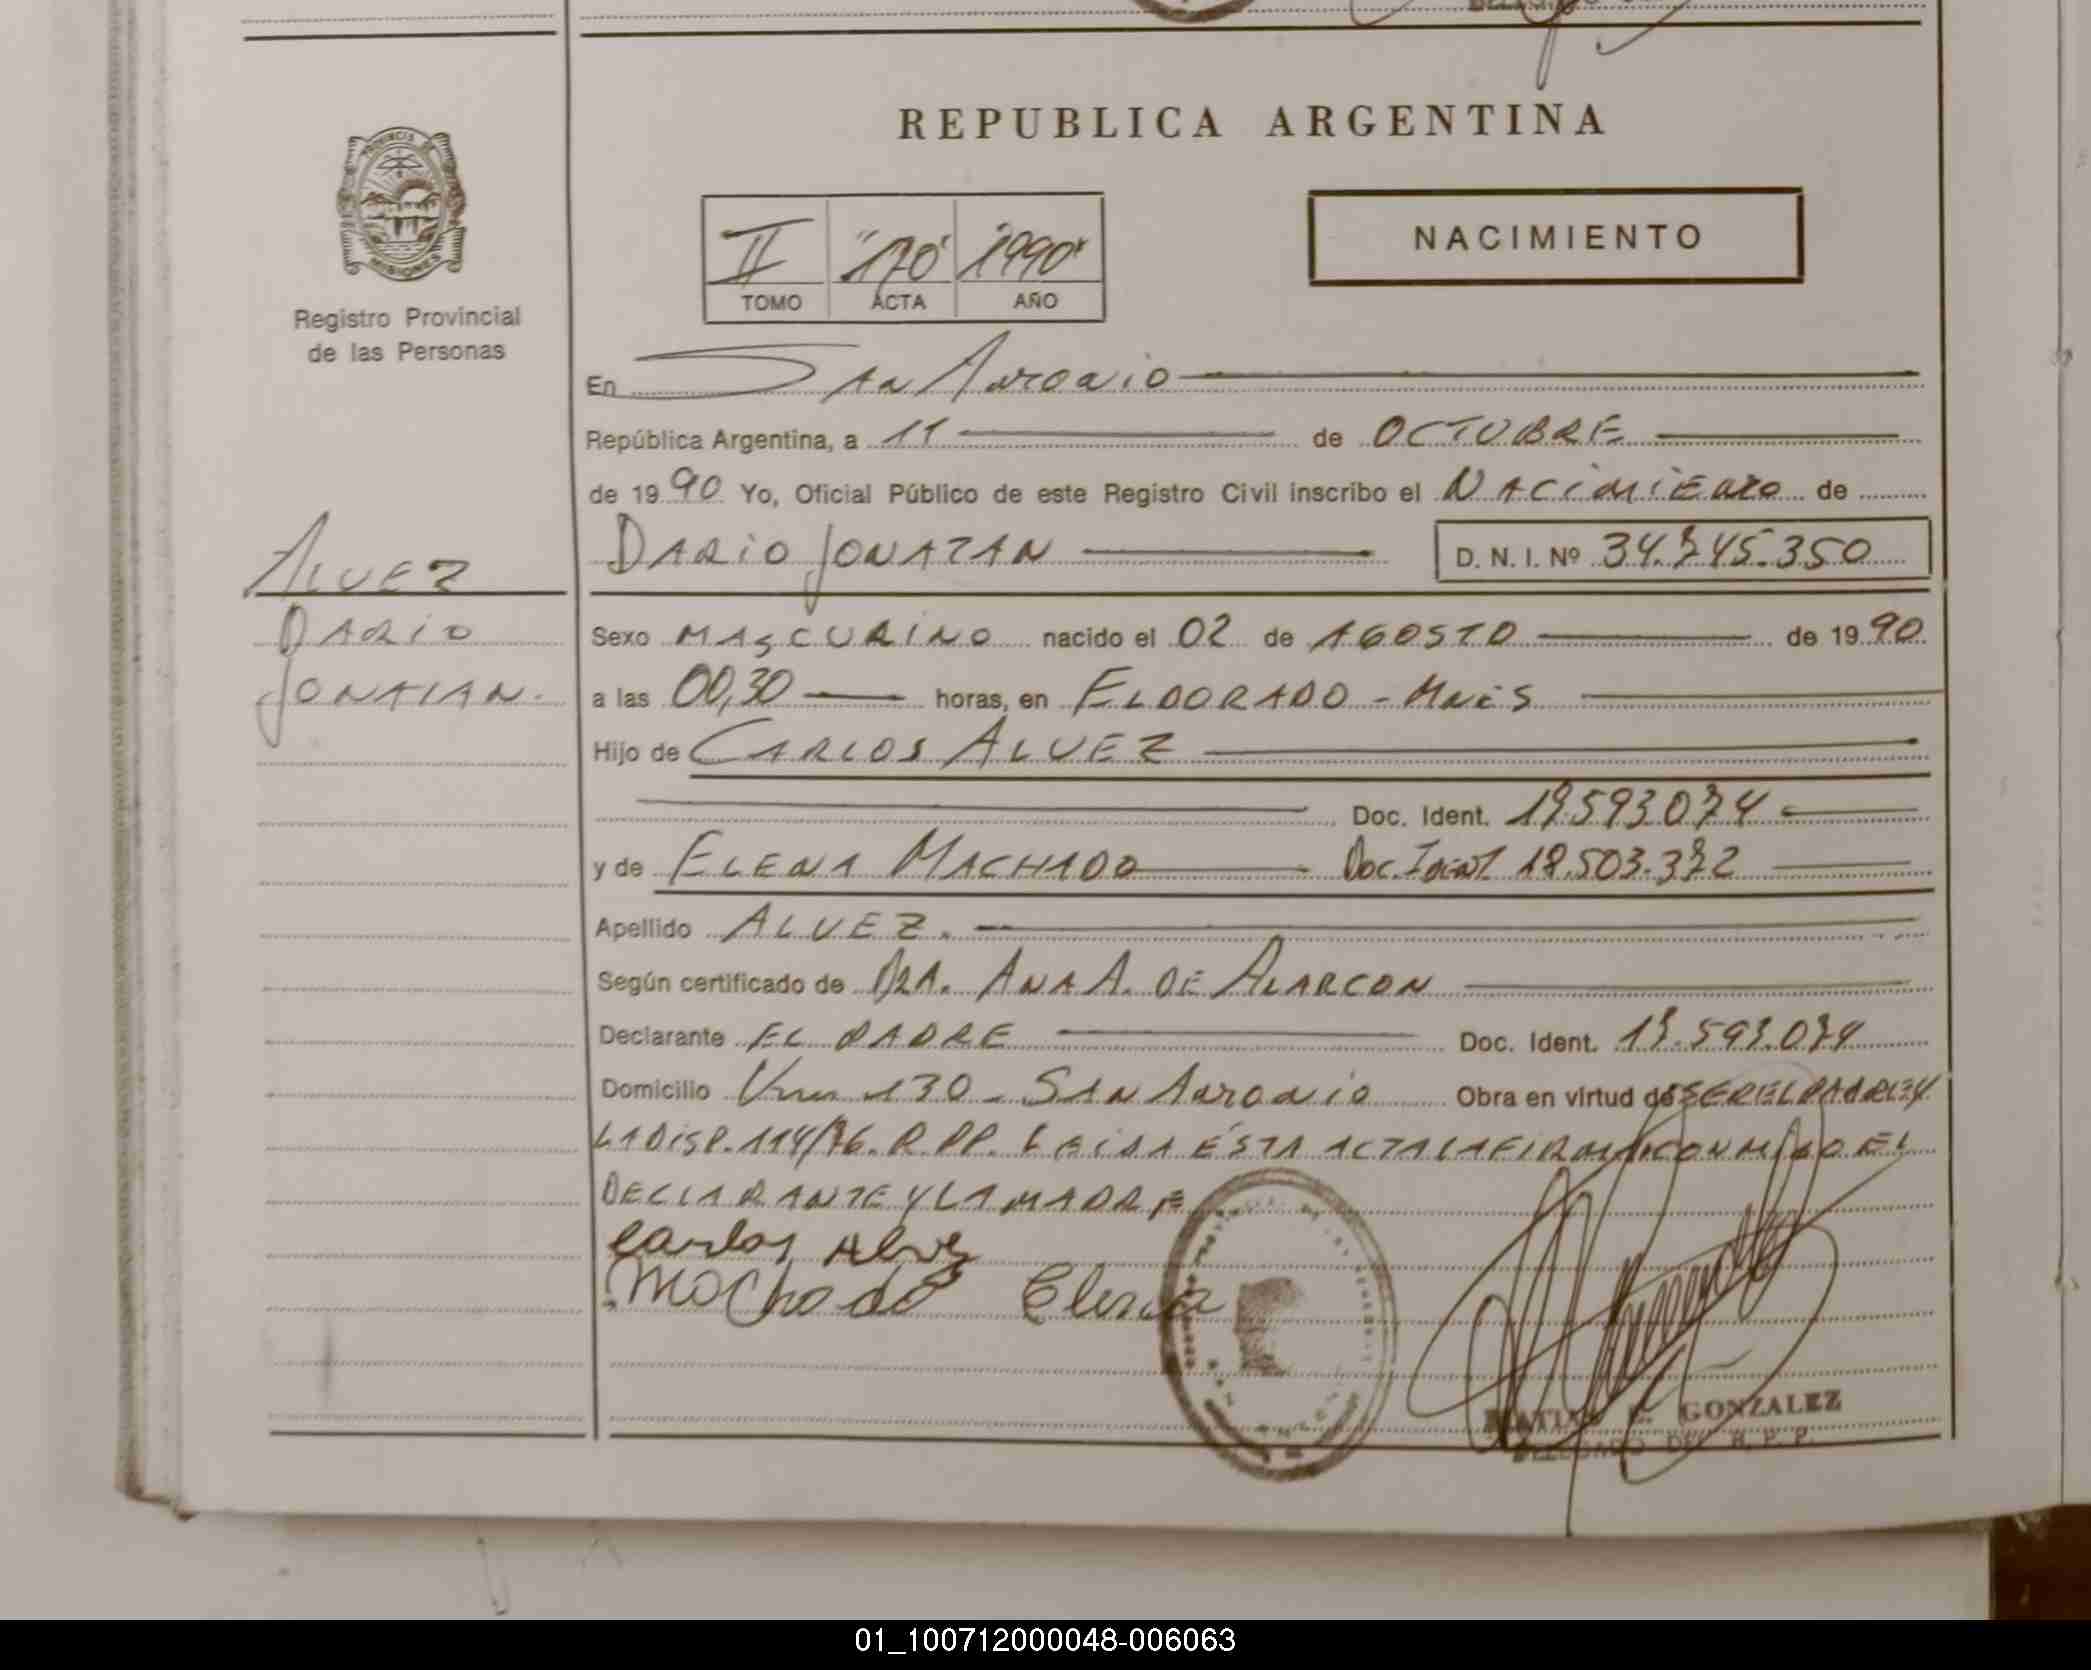 REPUBLICA ARGENTINA
PROVINCIA DE
MISIONES
Registro Provincial
de las Personas
II "170" 1990"
TOMO ACTA AÑO
NACIMIENTO
En San Antonio
República Argentina, a 11 de OCTUBRE
de 1990 Yo, Oficial Público de este Registro Civil inscribo el Nacimiento de
DARIO JONATAN D. N. I. Nº 34.745.350
ALVEZ
DARIO
JONATAN.
Sexo MASCULINO nacido el 02 de AGOSTO de 1990
a las 00,30 horas, en ELDORADO - Mnes
Hijo de CARLOS ALVEZ
Doc. Ident. 17.593.074
y de ELENA MACHADO Doc. Ident 18.503.372
Apellido ALVEZ.
Según certificado de DRA. ANA A. DE ALARCON
Declarante EL PADRE Doc. Ident. 17.593.074
Domicilio Km 130 - SAN Antonio Obra en virtud de SER EL PADRE Y
LA DISP. 114/76. R.PP. LEIDA ÉSTA ACTA LA FIRMA CONMIGO EL
DECLARANTE Y LA MADRE
Carlos Alvez
Machado Elena
MATIAS GONZALEZ
DELEGADO DEL R. P. P.
01_100712000048-006063